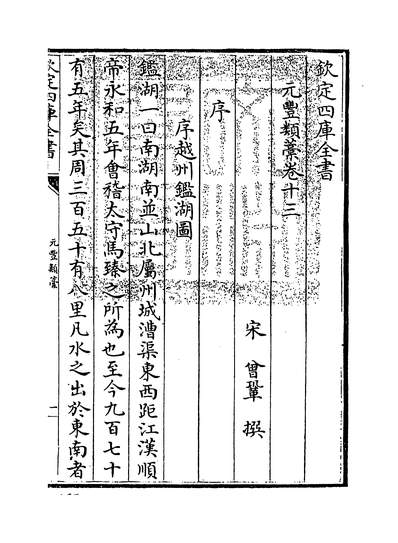 欽定四庫全書
元豐類藁卷十三
宋 曾鞏 撰
序
序越州鑑湖圖
鑑湖一曰南湖南並山北屬州城漕渠東西距江漢順
帝永和五年會稽太守馬臻之所為也至今九百七十
有五年矣其周三百五十有八里凡水之出於東南者
欽定四庫全書
元豐類藁